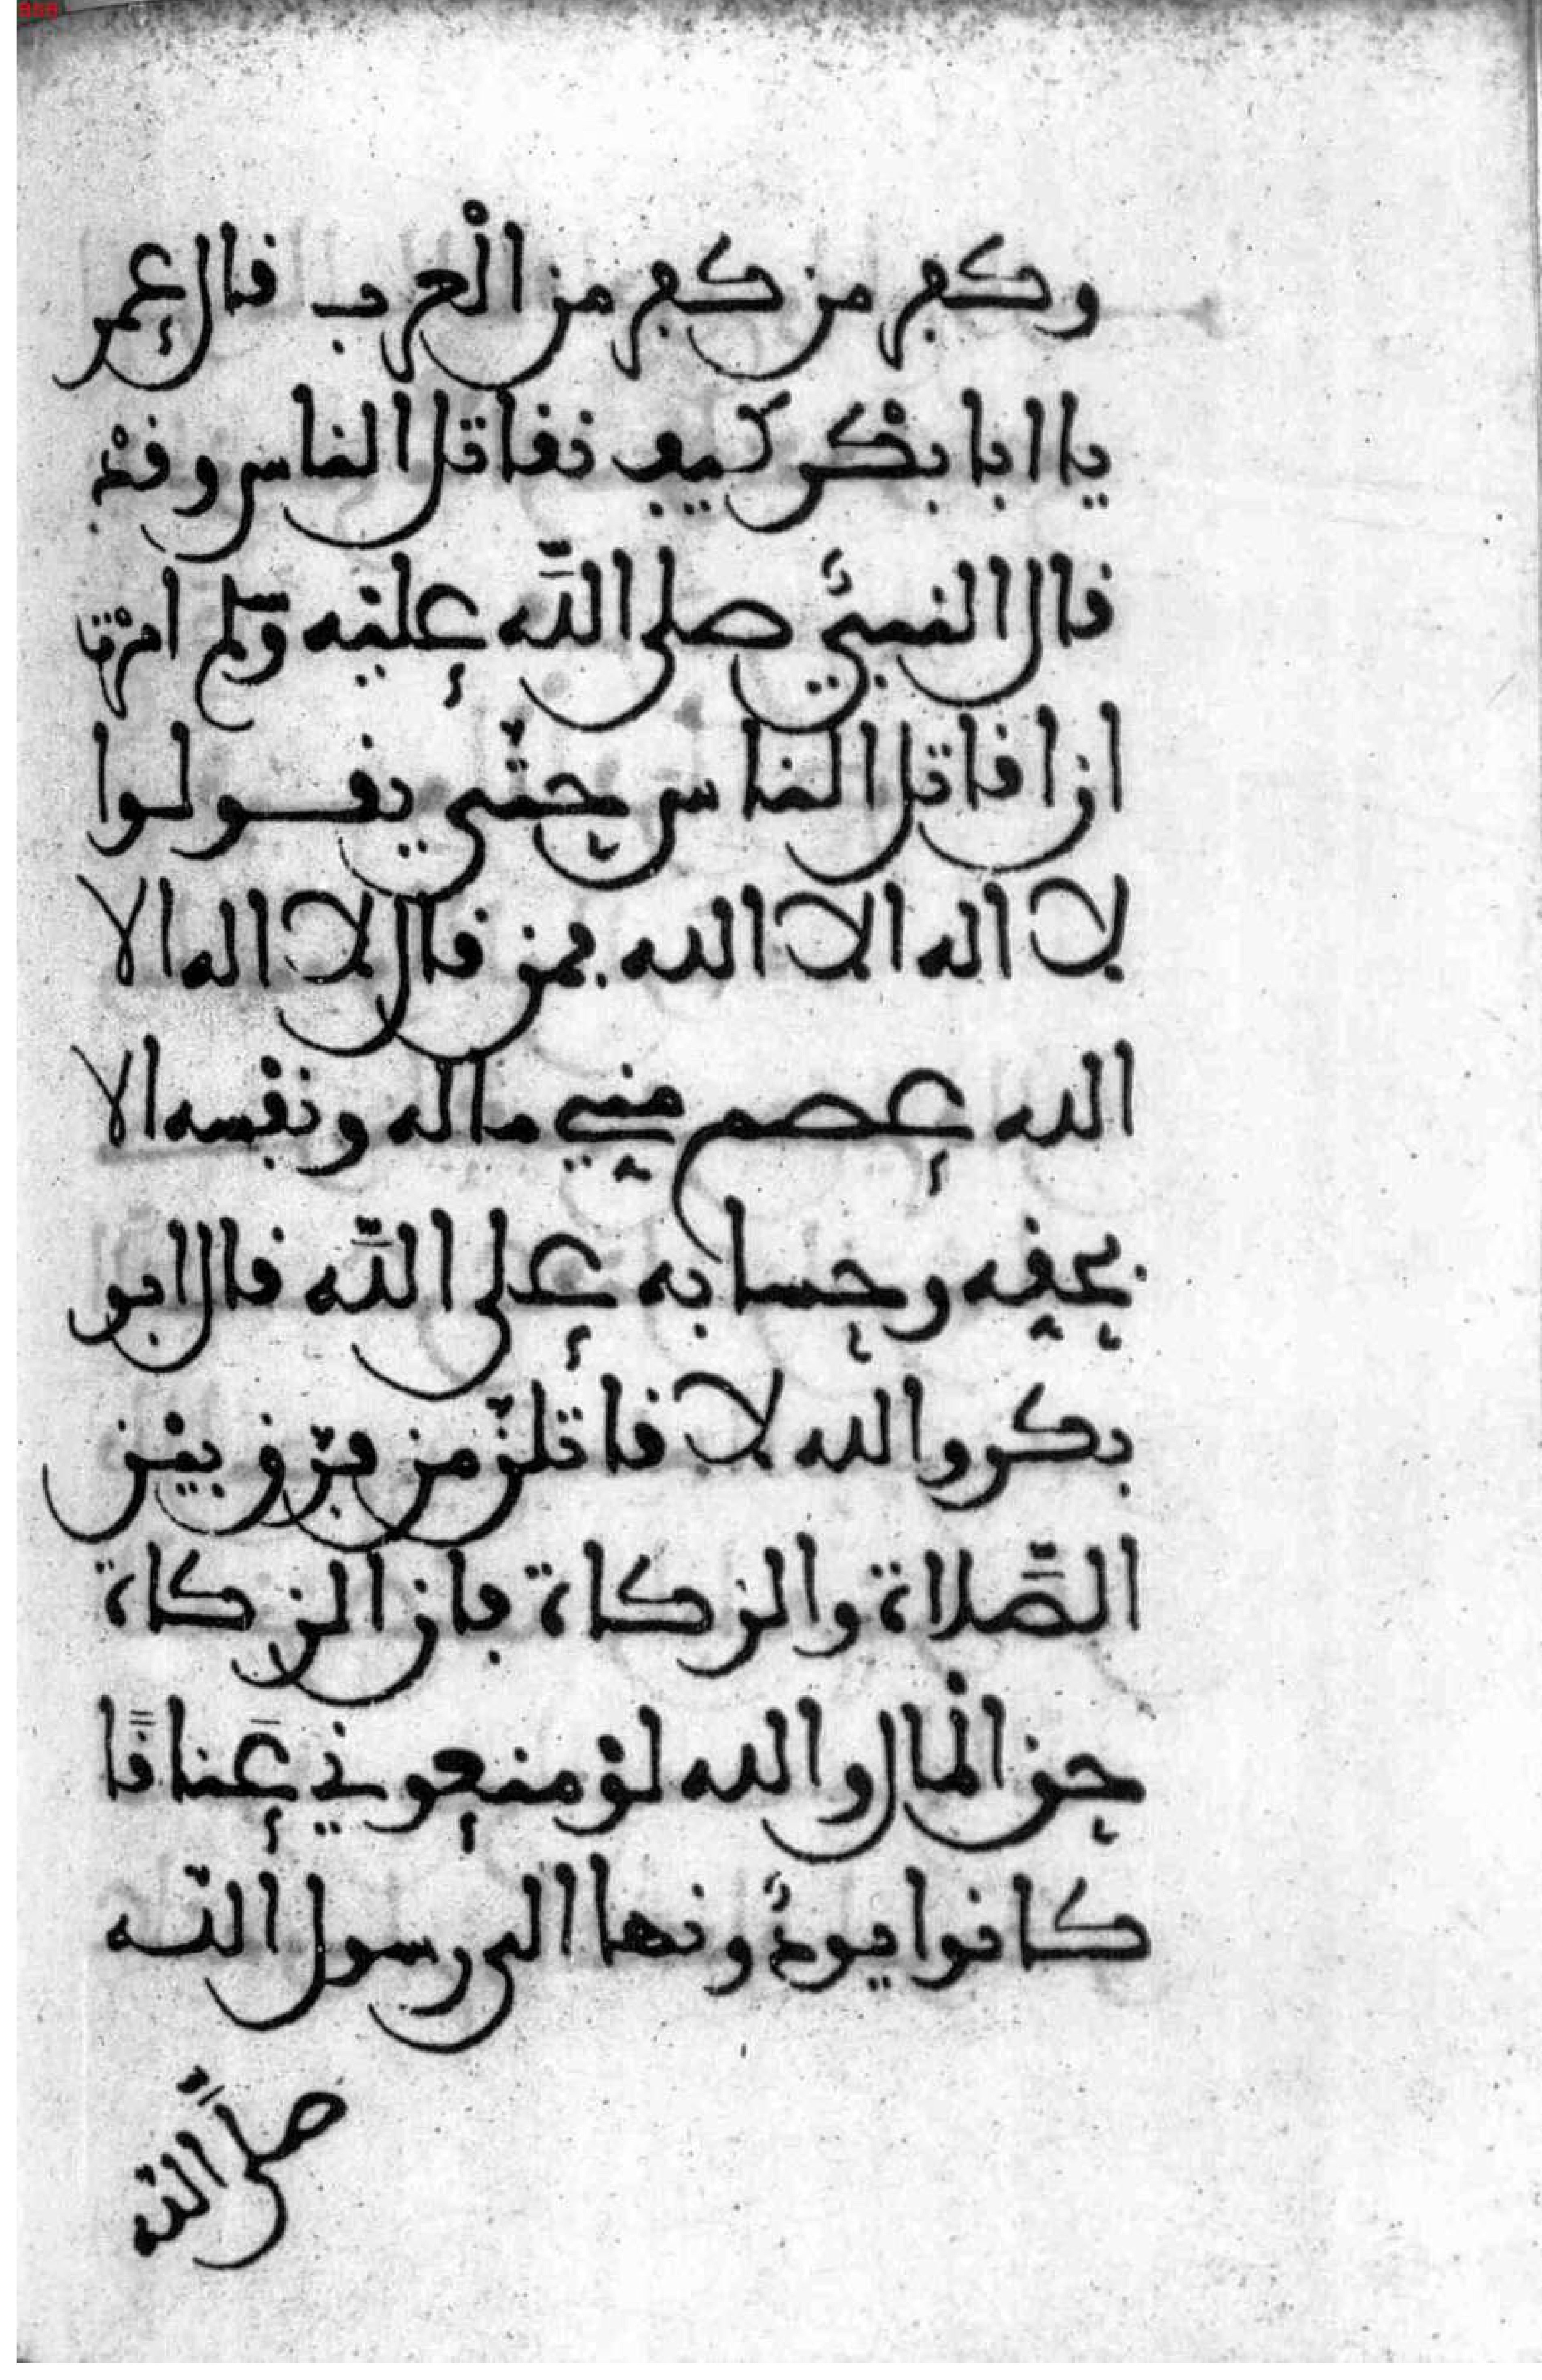 وكفر من كفر من الْعرب قال عمر
يا ابا بكْر كيف نقاتل الناس وقدْ
قال النبيّ صلى اللّه عليْه وسلم امرْت
ان اقاتل الناس حتّى يقولوا
لا اله الا الله فمن قال لا اله الا
الله عصم مني ماله ونفْسه الا
بحقه وحسابه على اللّه قال ابو
بكر والله لا قاتلنّ من فرّق بيْن
الصّلاة والزكاة فان الزكاة
حق الْمال والله لوْ منعوني عَناقًا
كانوا يودّونها الى رسول اللّه
صلَّى اللّه